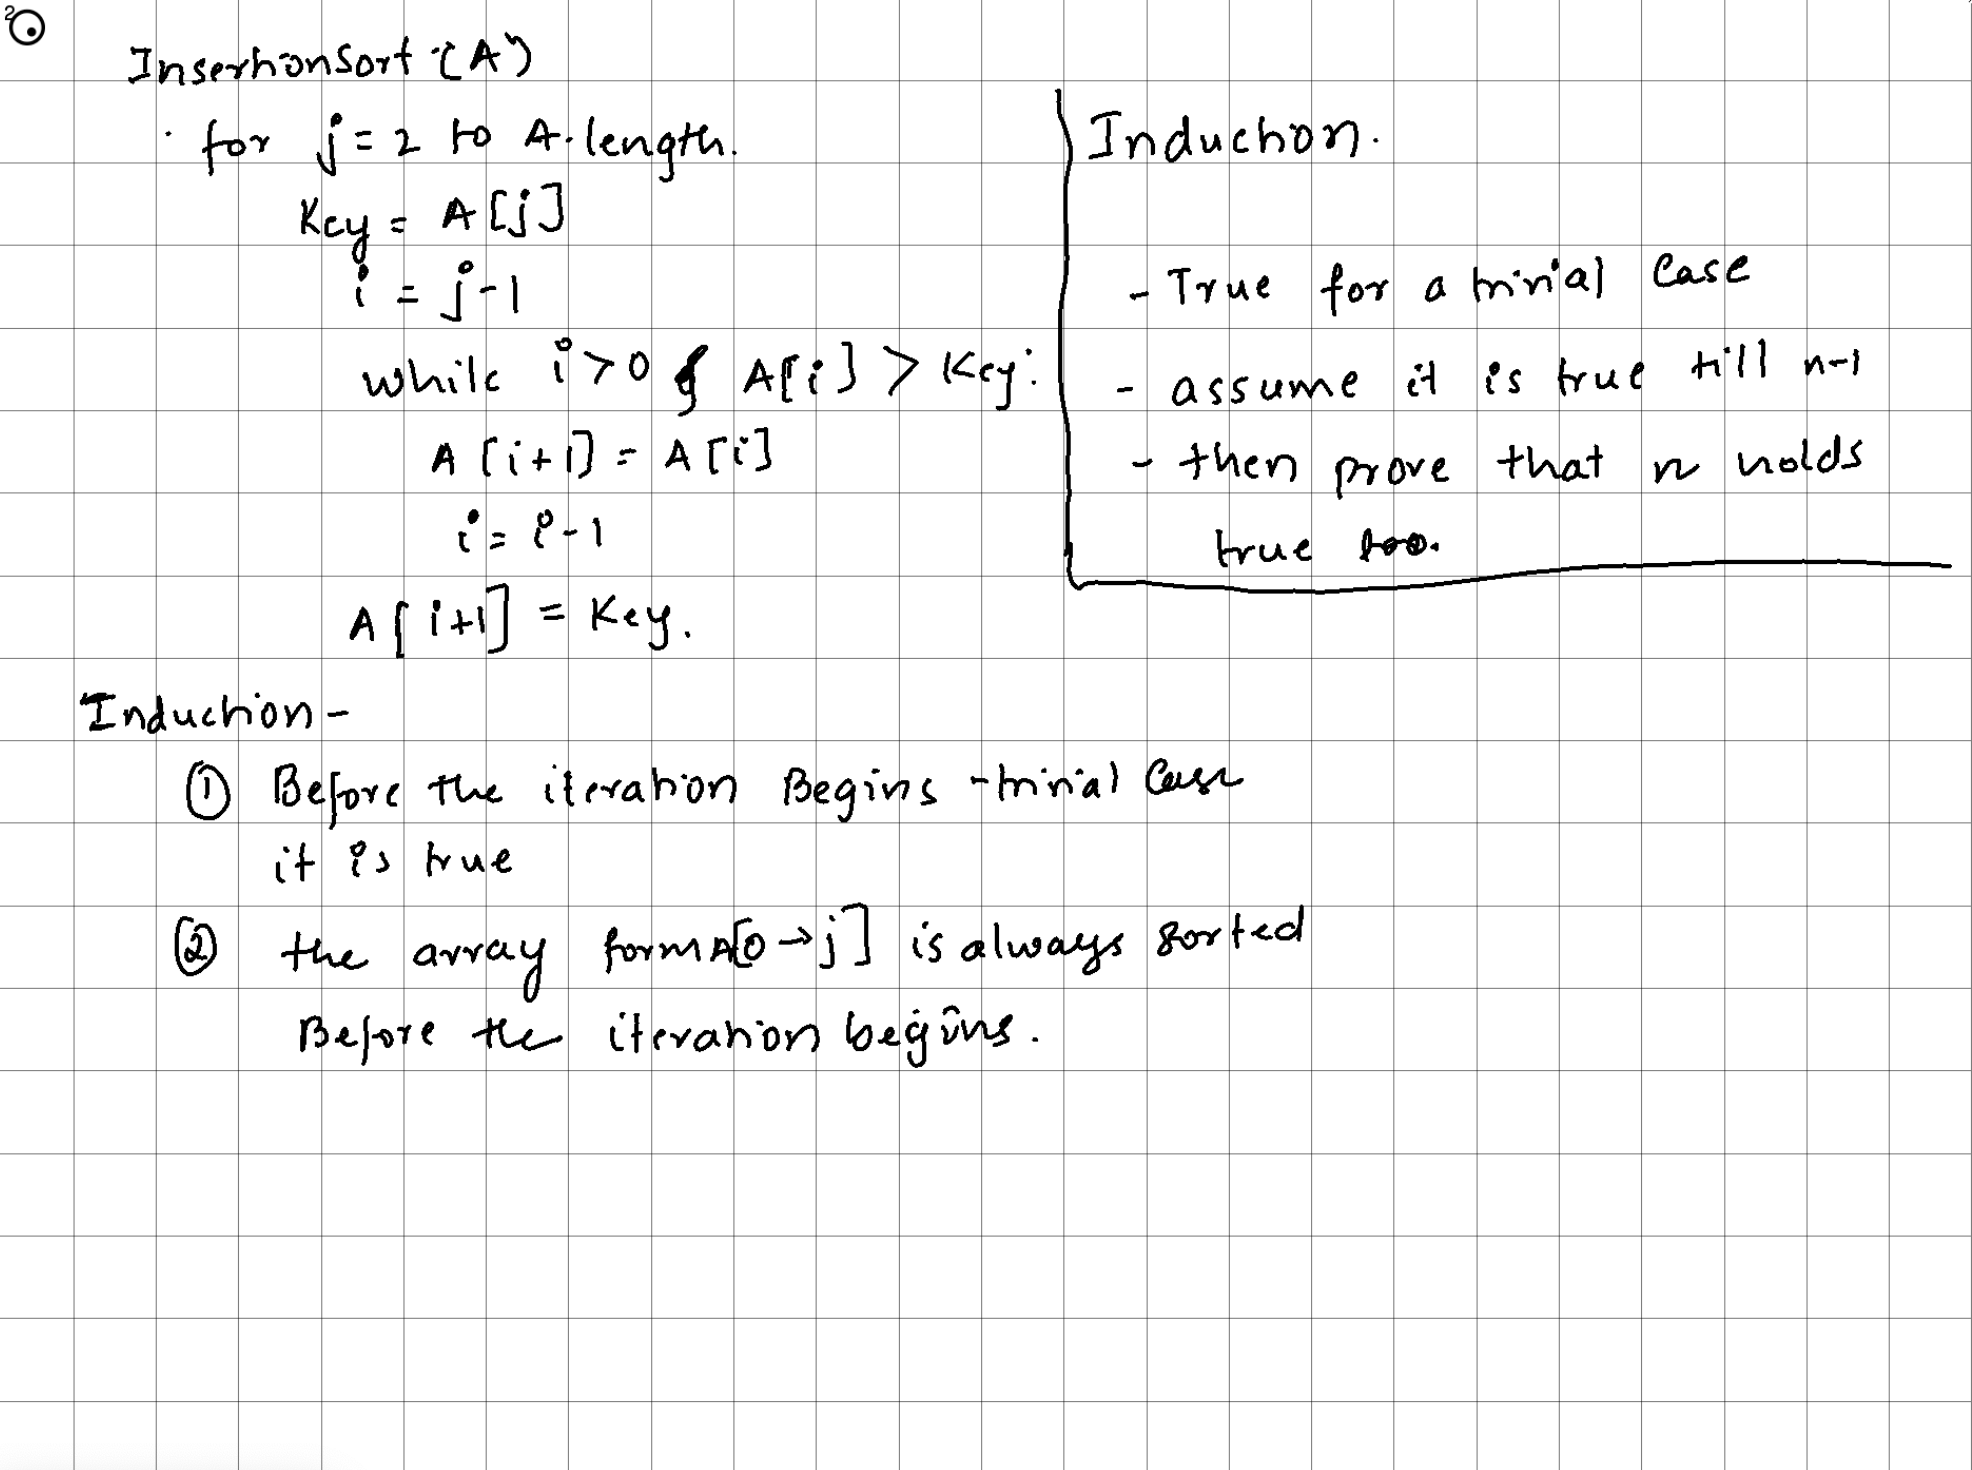 2
InsertionSort (A)
for j = 2 to A.length.
Key = A[j]
i = j-1
while i > 0 & A[i] > Key:
A[i+1] = A[i]
i = i-1
A[i+1] = Key.
Induction.
- True for a trivial Case
- assume it is true till n-1
- then prove that n holds
true too.
Induction -
① Before the iteration Begins - trivial Case
it is true
② the array form A[0→j] is always sorted
Before the iteration begins.